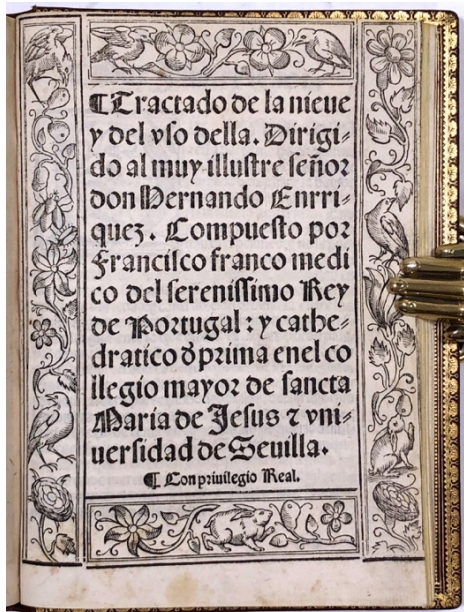 ¶Tractado de la nieue
y del vso della. Dirigi-
do al muy illustre señor
don Hernando Enrri-
quez. Compuesto por
Francisco franco medi
co del serenissimo Rey
de Portugal: y cathe-
dratico đ prima enel co
llegio mayor de sancta
Maria de Jesus ⁊ vni-
uersidad de Seuilla.
¶ Con priuilegio Real.